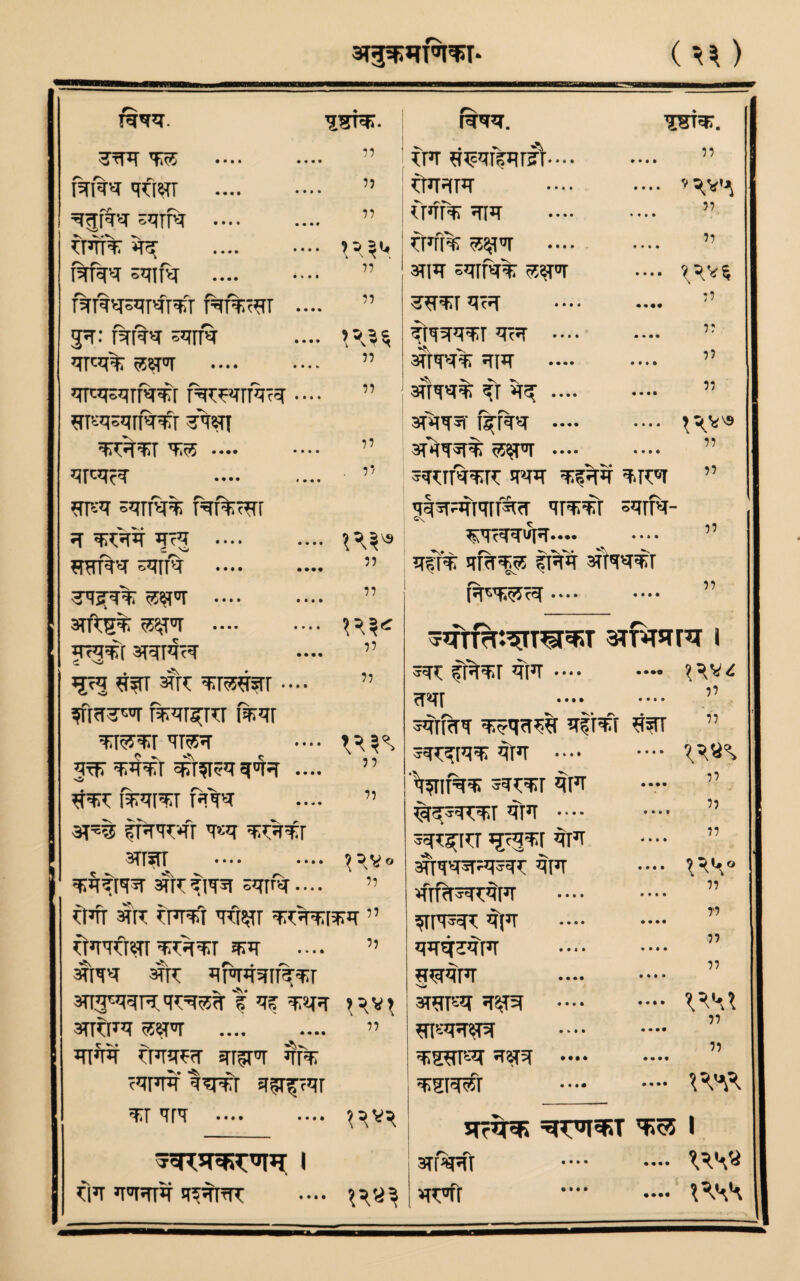 अनुक्रमणिका. (२३)
विषय. पृष्ठांक.
उत्तम फल .... .... ”
त्रिविध परीक्षा .... .... ”
चतुर्विध व्याधि .... .... ”
रोगोंके भेद .... .... १२३५
त्रिविध व्याधि .... .... ”
त्रिविधव्याधीमेंकी चिकित्सा .... ”
पुनः त्रिविध व्याधि .... १२३६
याप्यके लक्षण .... .... ”
याप्यव्याधिकी .... ”
साध्यव्याधिकी उपेक्षा
करनेका फल .... .... ”
याप्यत्व .... .... ”
साध्य व्याधिके चिकित्सा
न करनेमें मृत्यु .... .... १२३७
सप्तविध व्याधि .... .... ”
उपद्रवके लक्षण .... .... ”
अरिष्टके लक्षण .... .... १२३८
मृत्युकी अवधित्व .... ”
मृत्यु संज्ञा और कालसंज्ञा .... ”
शीतउष्ण क्रियाद्वारा क्रिया
कालका पालन .... १२३९
एक कर्मकी बाहुल्य वर्णन .... ”
संकर क्रियाका निषेध .... ”
अच्छे होनेपरभी पथ्य करनेकी
आज्ञा .... .... १२४०
कर्मदोषज और दोषज व्याधि .... ”
रोगी और रोगकी परीक्षा करनेकाक्रम ”
रोगपरीक्षा करनेका क्रम .... ”
औषध और मणिमंत्रादिका
आयुष्यवान् पुरुषपर है यह कथन १२४१
आरोग्य लक्षण .... .... ”
मार्गमें रोगग्रस्त ब्राह्मण गौके
त्यागमें वैद्यकी ब्रह्महत्या
का पाप .... .... १२४२
ज्वरप्रकरणम् ।
रोग गणनामें प्रथमज्वर .... १२४३
विषय. पृष्ठांक.
रोग संख्याविचार .... .... ”
रोगनाम .... .... १२४५
रोगोंके नाम .... .... ”
रोगोंके लक्षण .... .... ”
आम व्याधिके लक्षण .... १२४६
उसका यत्न .... .... ”
रोगशमका यत्न .... .... ”
औषधके नाम .... .... ”
औषधके दो भेद .... .... ”
अभेषज द्विविध .... .... १२४७
अभेषजके लक्षण .... .... ”
ज्वराधिकार प्रथम कहनेमें कारण ”
पूर्वजन्मोपार्जित पापकी व्याधि-
रूपत्वकथन.... .... ”
पहिले प्रतिकूल होनेमें औषधकी
विफलत्व .... .... ”
ज्योतिःशास्त्रका अभिप्राय ।
ज्वर होनेका योग .... .... १२४८
तथा .... .... ”
ज्योतिष कल्पलतामें ग्रहोंकी संज्ञा ”
ज्वरदायक योग .... .... १२४९
वैशाखिके ज्वरका योग .... ”
.... योग .... .... ”
ज्वरद्वारा मृत्युका योग .... ”
औषधजन्यज्वर योग .... १२५०
शीतज्वरयोग .... .... ”
शापज्वर योग .... .... ”
.... .... ”
.... .... ”
असाध्य नक्षत्र .... .... १२५१
साध्यनक्षत्र .... .... ”
कष्टसाध्य नक्षत्र .... .... ”
कष्टावली .... .... १२५२
प्रत्येक चरणका फल ।
अश्विनी .... .... १२५४
भरणी .... .... १२५५